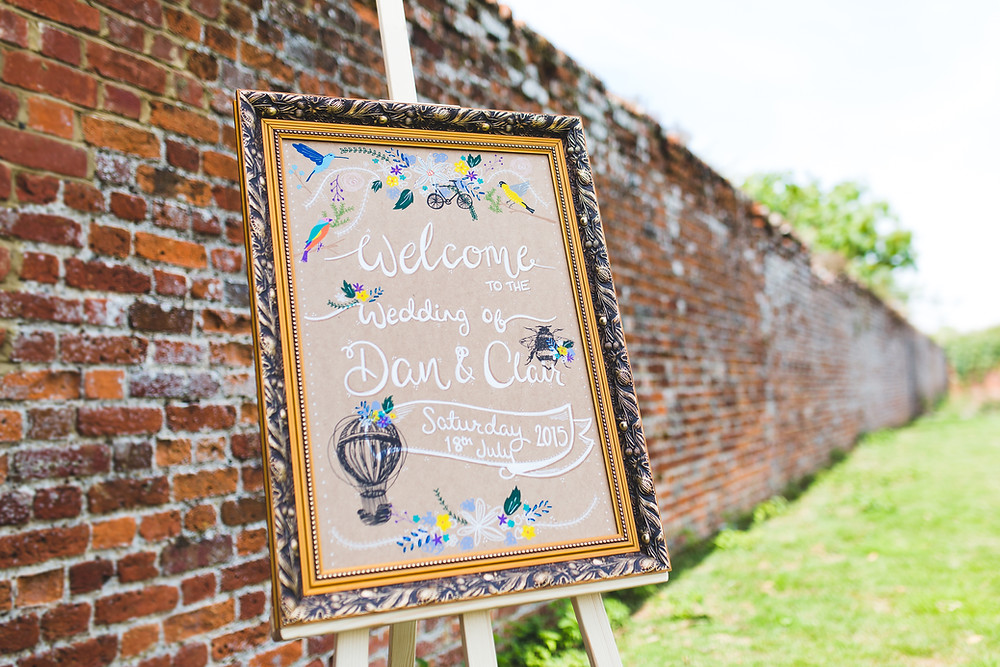 Welcome
TO THE
Wedding of
Dan & Clair
Saturday
18th July 2015